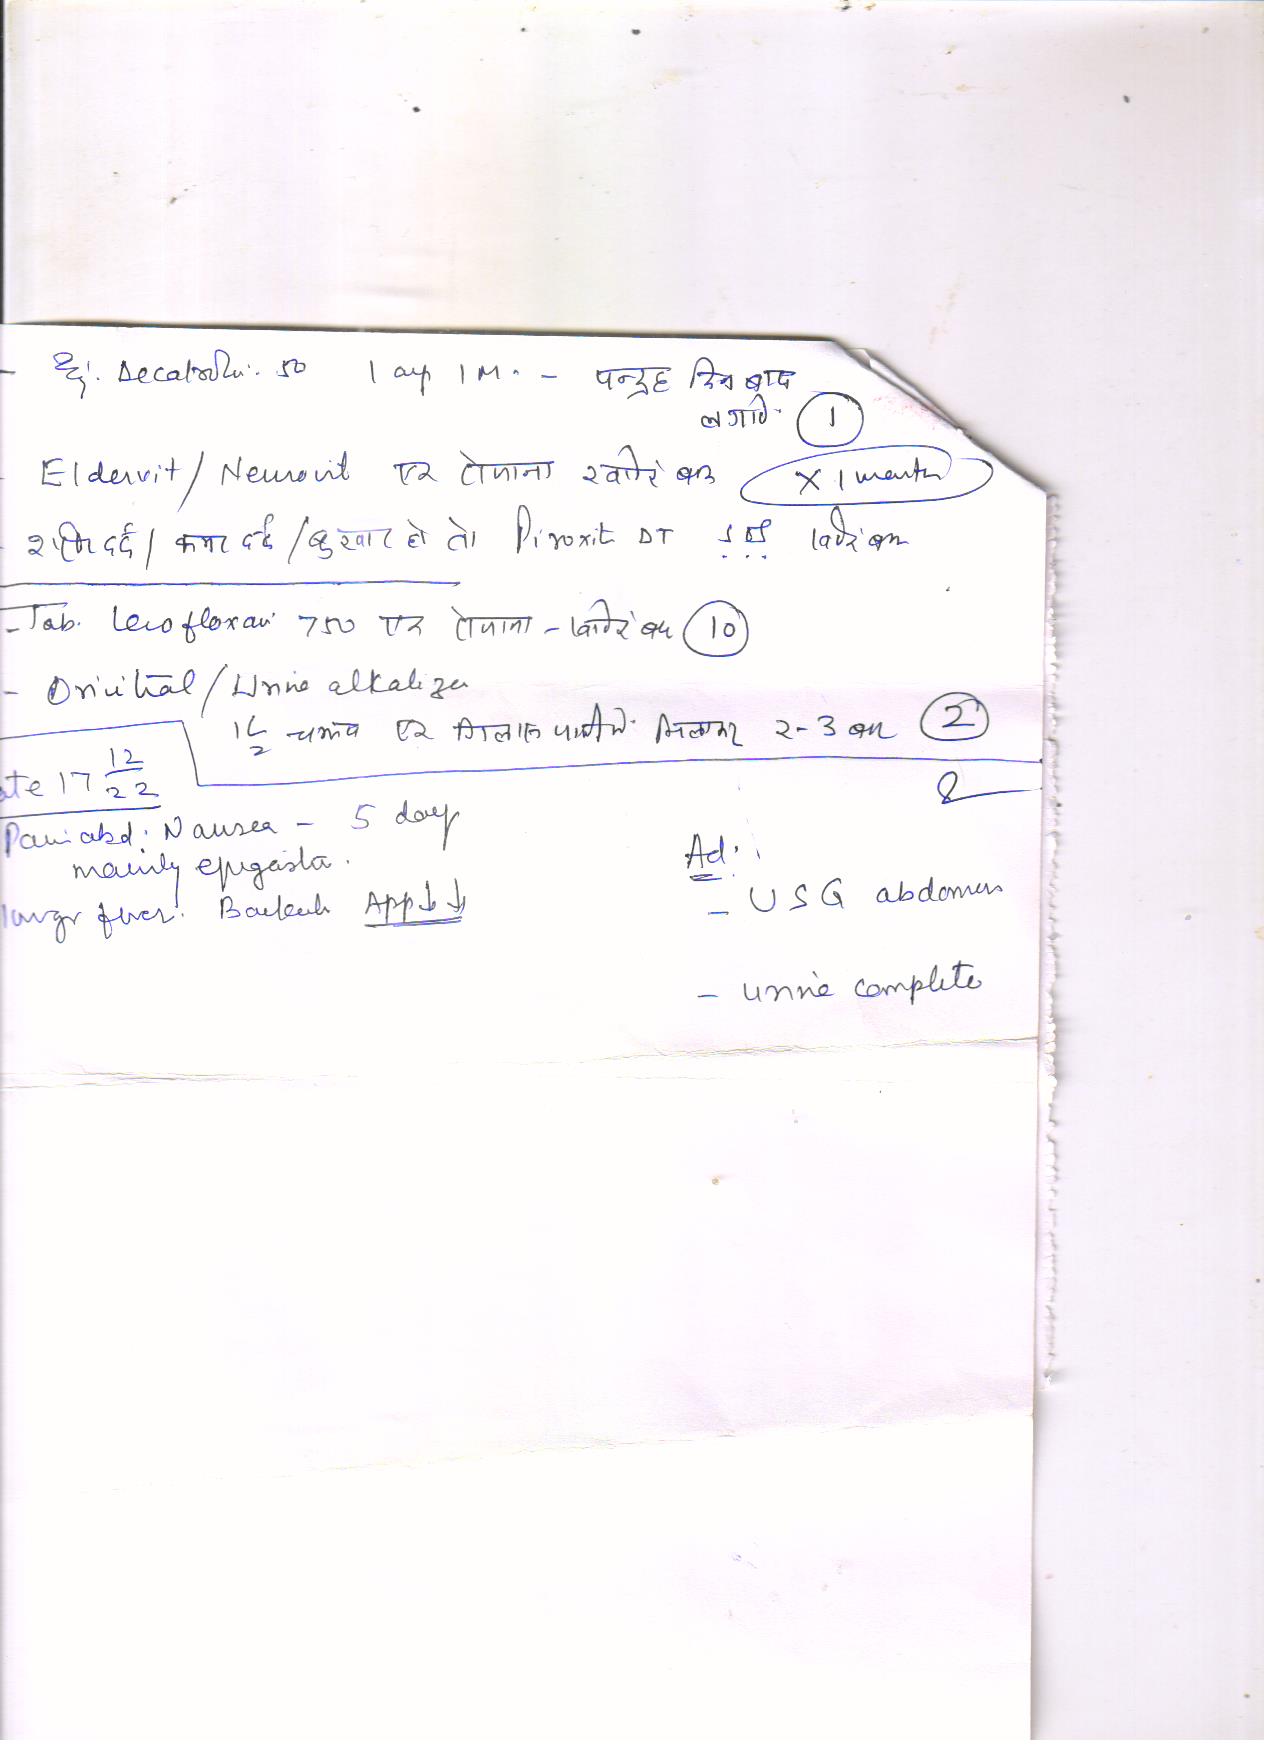 - इं. Decabolin. 50 1 amp 1M. - पन्द्रह दिन बाद
लगावे. 1
- Eldervit / Neurovit एक रोजाना खाने के बाद x 1 month
- शरीर दर्द / कमर दर्द / बुखार हो तो Piroxit DT SOS
- Tab. Levofloxacin 750 एक रोजाना - 10
- Oricitral / Urine alkalizer
चम्मच एक गिलास पानी में मिलाकर 2-3 बार 2
ate 17 12/22
Pain abd. Nausea - 5 day
mainly epigastr.
fever. App↓↓
Ad.
- USG abdomen
- urine complete